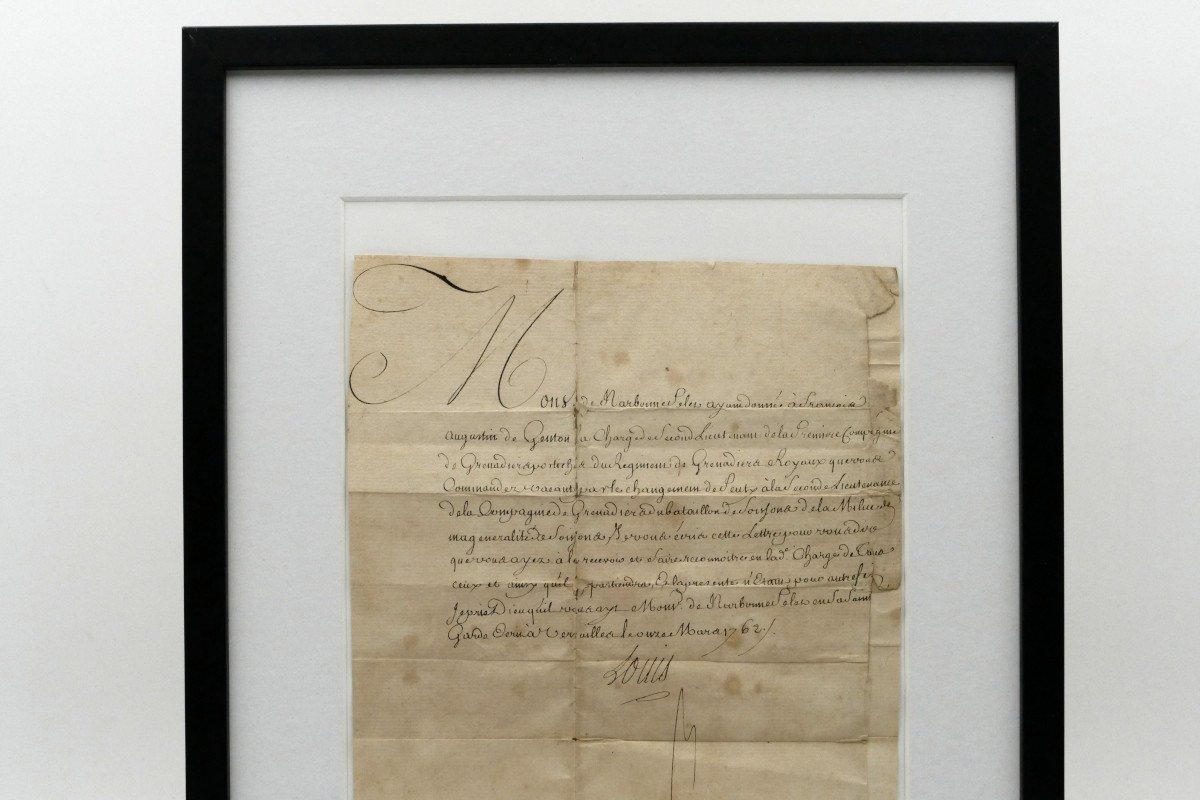 Mons. de Narbonne Pelet ayant donné à
Augustin de Genton la Charge de Second Lieutenant de la Premiere Compagnie
de Grenadiers postiches du Regiment de Grenadiers Royaux que vous
Commandez vacante par le changement de à la Seconde Lieutenance
de la Compagnie de Grenadiers du bataillon de Soissons de la Milice de
ma generalité de Soissons Je vous écris cette Lettre pour vous dire
que vous ayez à le recevoir et faire reconnoitre en lad. Charge de tous
ceux et ainsy qu'il apartiendra, Et la presente n'Etant pour autre fin
Je prie Dieu qu'il vous ayt Mons. de Narbonne Pelet en sa Sainte
Garde Ecrit à Versailles le onze Mars 1762 /.
Louis